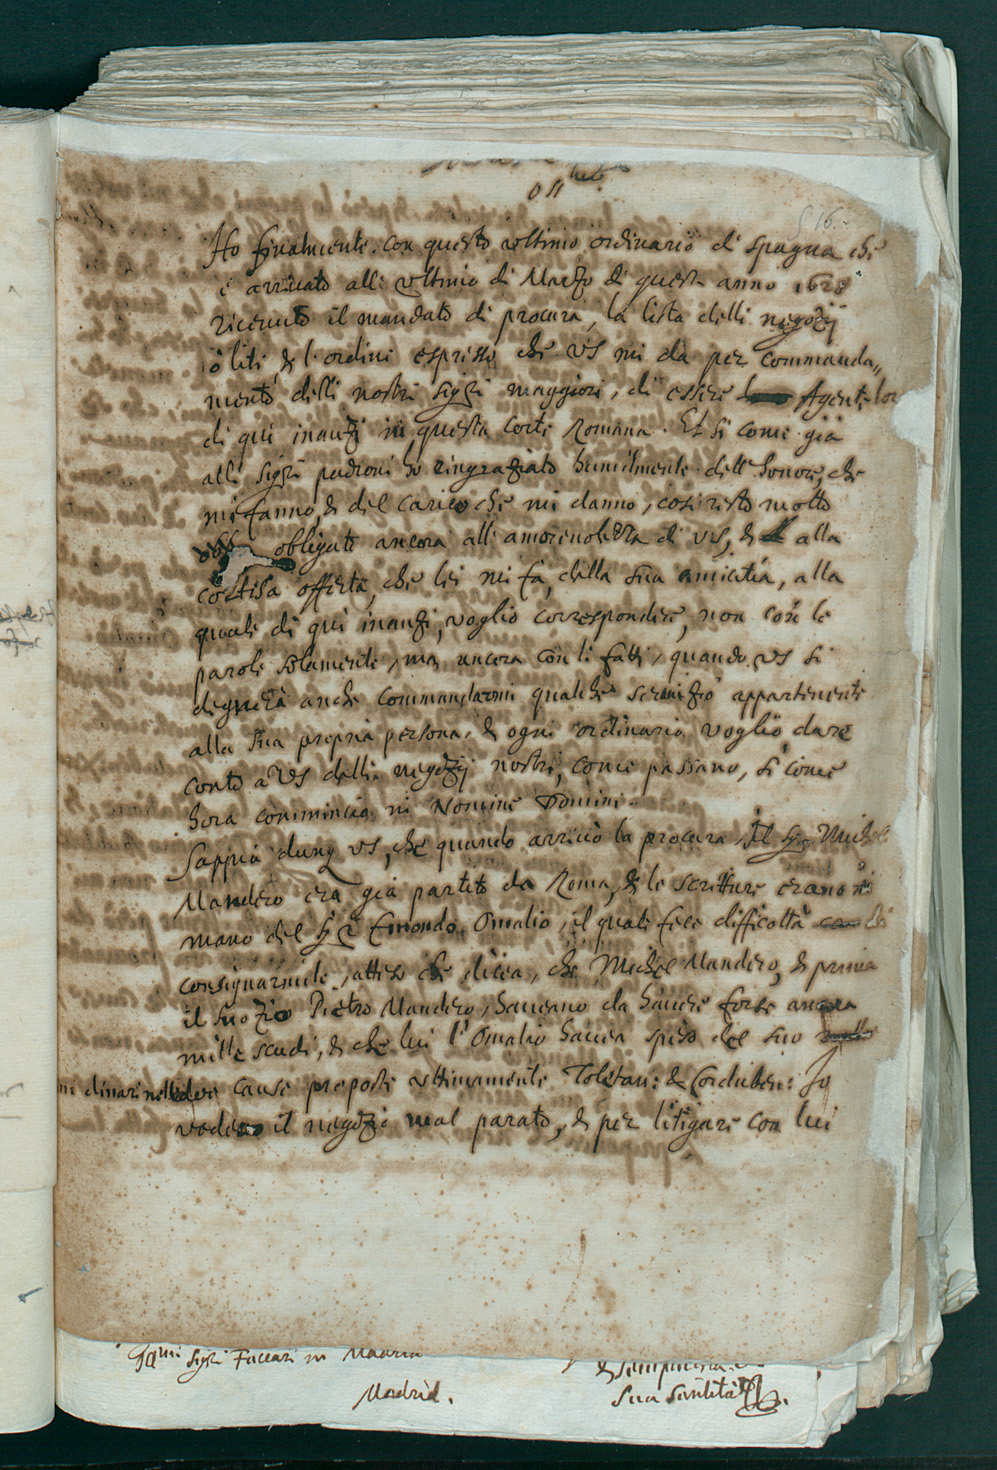 516.
Ho finalmente con questo ultimo ordinario di Spagna che
è arrivato alli ultimo di Marzo di questa anno 1628
ricevuto il mandato di procura, la lista delli negozij
ò liti, & l'ordine espresso che VS mi da per commanda„
mento delli nostri sigri maggiori, di essere Agente lor
di qui inanzi in questa corte Romana. Et si come già
alli sigri padroni ho ringraziato humilmente dell'honore, che
mi fanno, & del carico che mi danno, così resto molto
obligato ancora all'amorevolezza di VS, & alla
cortesa offerta, che lei mi fa, della sua amicitia, alla
quale di quì inanzi, voglio correspondere, non con le
parole solamente, ma ancora con li fatti, quando VS si
degnerà anche commandarmi qualche servizio appartenente
alla sua propria persona, & ogni ordinario voglio dare
conto a VS delli negozij nostri, come passano, si come
hora comincia in Nomine Domini.
Sappia dunq VS, che quando arrivò la procura, il sigr Michel
Mandero era già partito da Roma, & le scritture erano in
mano del sigr Emondo Omalio, il quale fece difficoltà di
consignarmele, atteso che dicea, che Michel Mandero, & prima
il suo zio Pietro Mandero, haveano da havere forse ancora
mille scudi, & che lui l'Omalio havea speso del suo
ni dinari nelle dere cause proposte ultimamente Toletan: & Corduben: Io
vedeno il negozio mal parato, & per litigare con lui
sigri Faccari in Madrid
Madrid.
Sua Santità